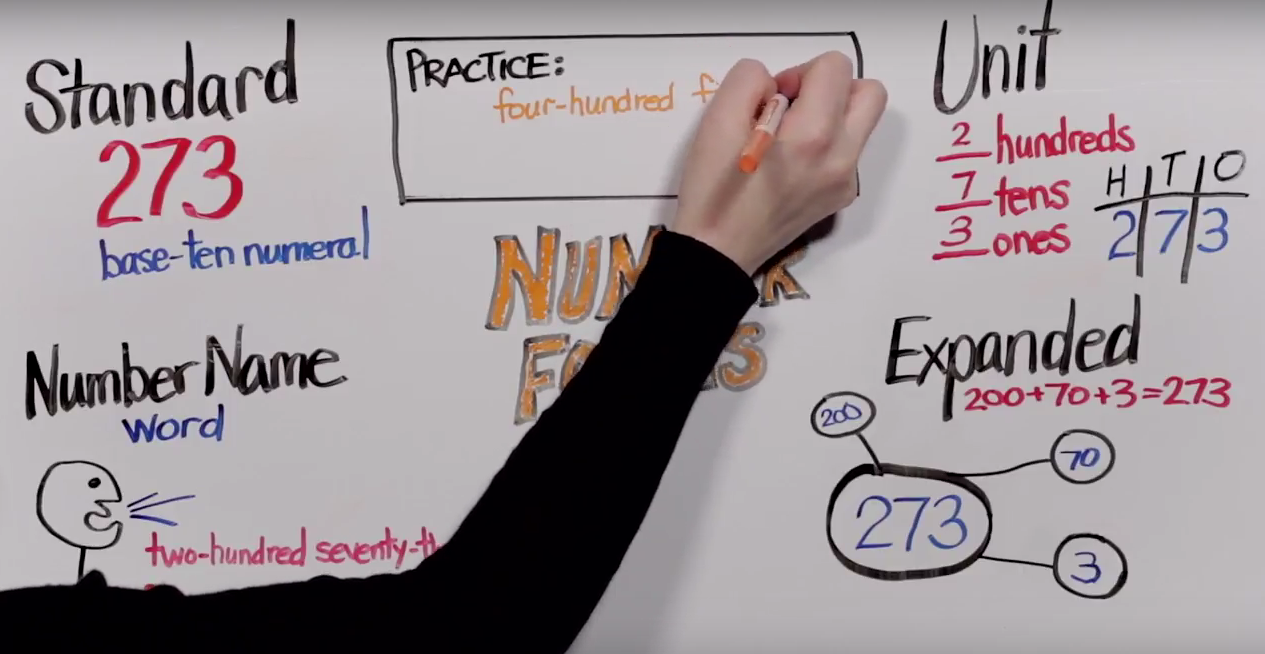 Standard
273
base-ten numeral
PRACTICE:
four-hundred
Unit
2 hundreds
7 tens
3 ones
H T O
2 7 3
Number Name
word
two-hundred seventy-
Expanded
200+70+3=273
200
70
273
3